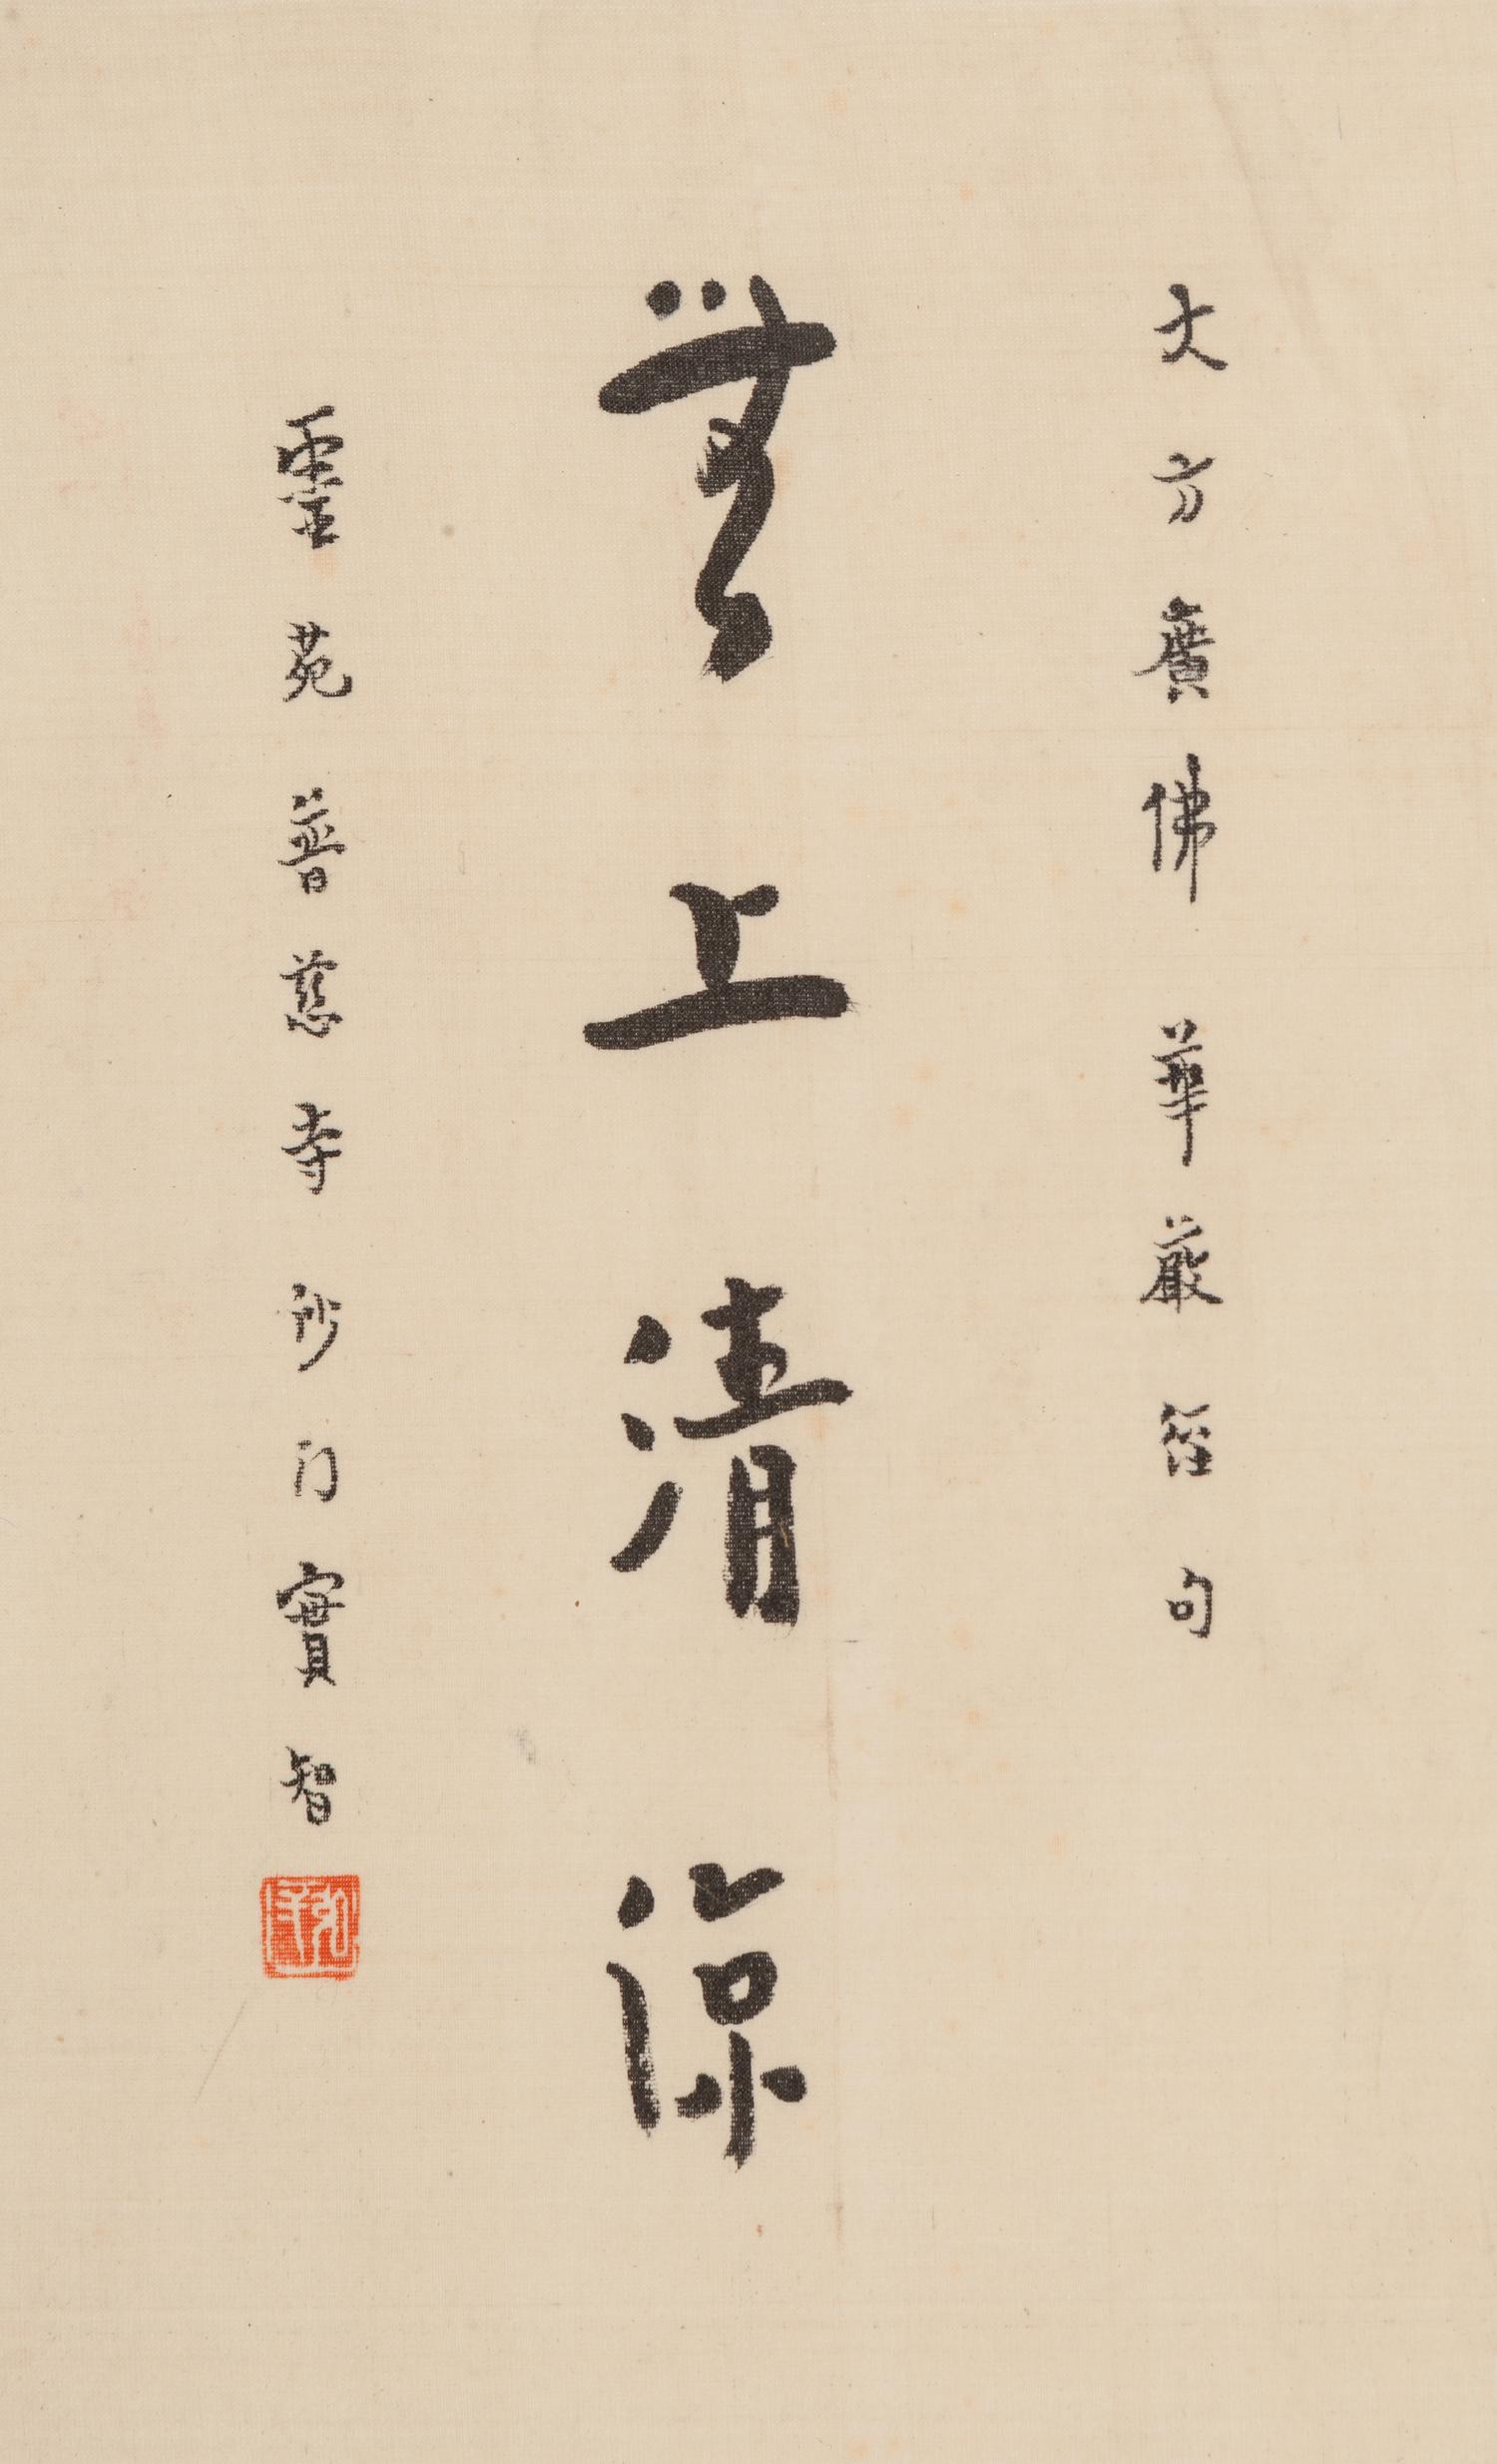 大方廣佛華嚴經句
無上清涼
靈苑普慈寺沙門實智